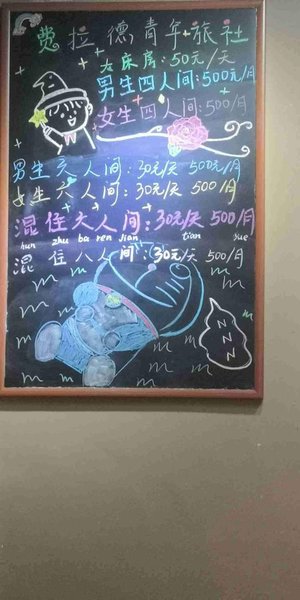 费拉德青年旅社
大床房:50元/天
男生四人间:500元/月
女生四人间:500/月
男生六人间:30元/天 500元/月
女生六人间:30元/天 500/月
混住大人间:30元/天 500/月
hun zhu ba ren jian tian yue
混住八人间:30元/天 500/月
Z
Z
Z